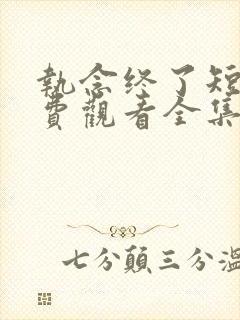 執念终了短
費觀看全集
七分顛三分溫